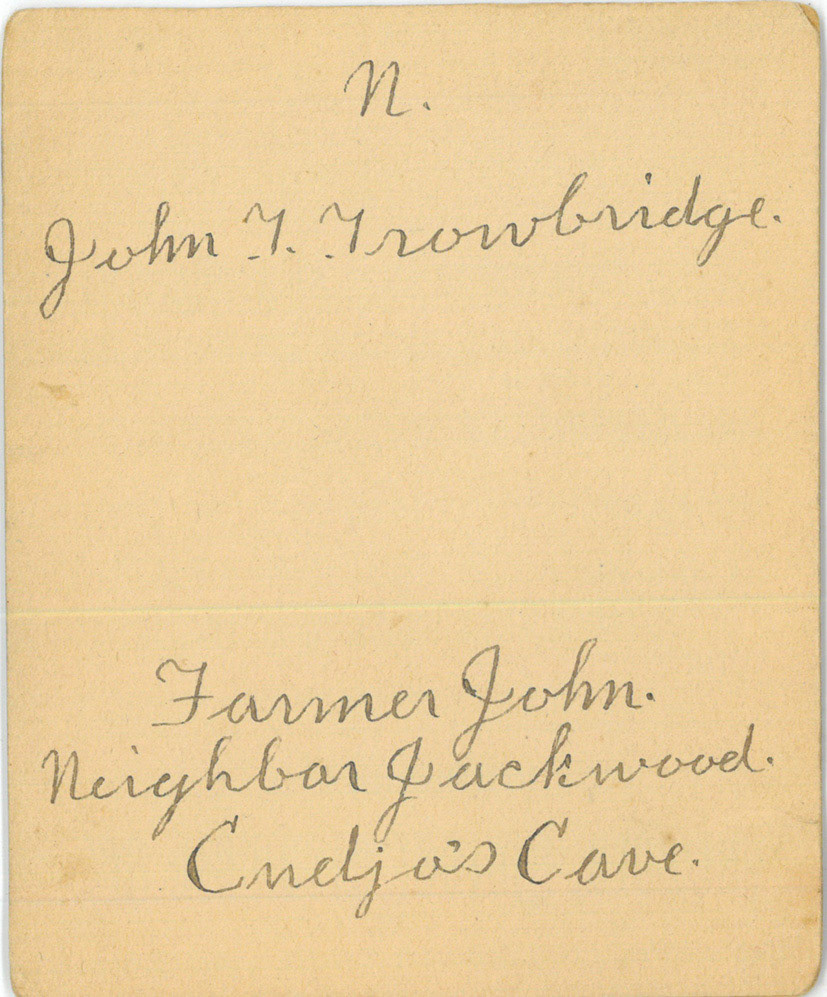 N.
John T. Trowbridge.
Farmer John.
Neighbor Jackwood.
Cudjo's Cave.